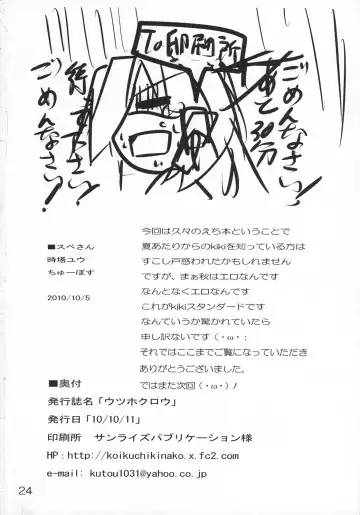 To印刷所
ごめんなさい
あと30分
待って下さい
ごめんなさい!
■スペさん
時塔ユウ
ちゅーぼす
2010/10/5
今回は久々のえち本ということで
夏あたりからのkikiを知っている方は
すこし戸惑われたかもしれません
ですが、まぁ秋はエロなんです
なんとなくエロなんです
これがkikiスタンダードです
なんていうか驚かれていたら
申し訳ないです(・ω・;
それではここまでご覧になっていただき
ありがとうございました。
ではまた次回(・ω・)ノ
■奥付
発行誌名「ウツホクロウ」
発行日「10/10/11」
印刷所　サンライズパブリケーション様
HP:http://koikuchikinako.x.fc2.com
e-mail: kutou1031@yahoo.co.jp
24